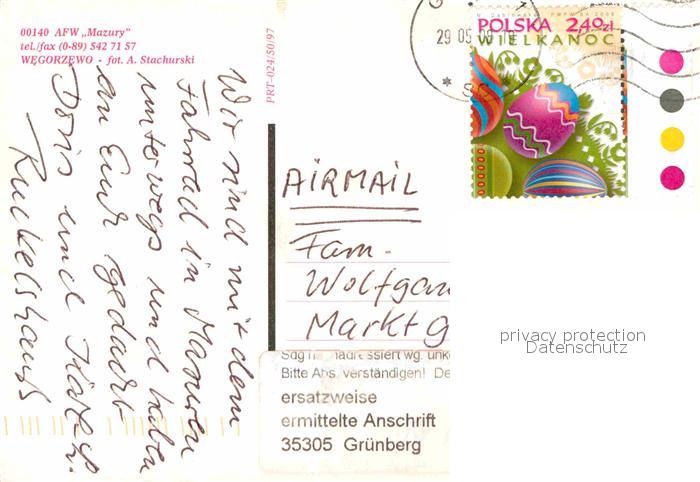 00140 AFW „Mazury"
tel./fax (0-89) 542 71 57
WĘGORZEWO - fot. A. Stachurski
PRT-024/50/97
Wir sind mit dem
Fahrrad in Masuren
unterwegs und haben
an Euch gedacht
Doris und
Ruckelshauß
29 05
POLSKA 2,40zł
WIELKANOC
AIRMAIL
Fam.
Wolfgan
Markt g
Bitte Abs. verständigen! De
ersatzweise
ermittelte Anschrift
35305 Grünberg
privacy protection
Datenschutz